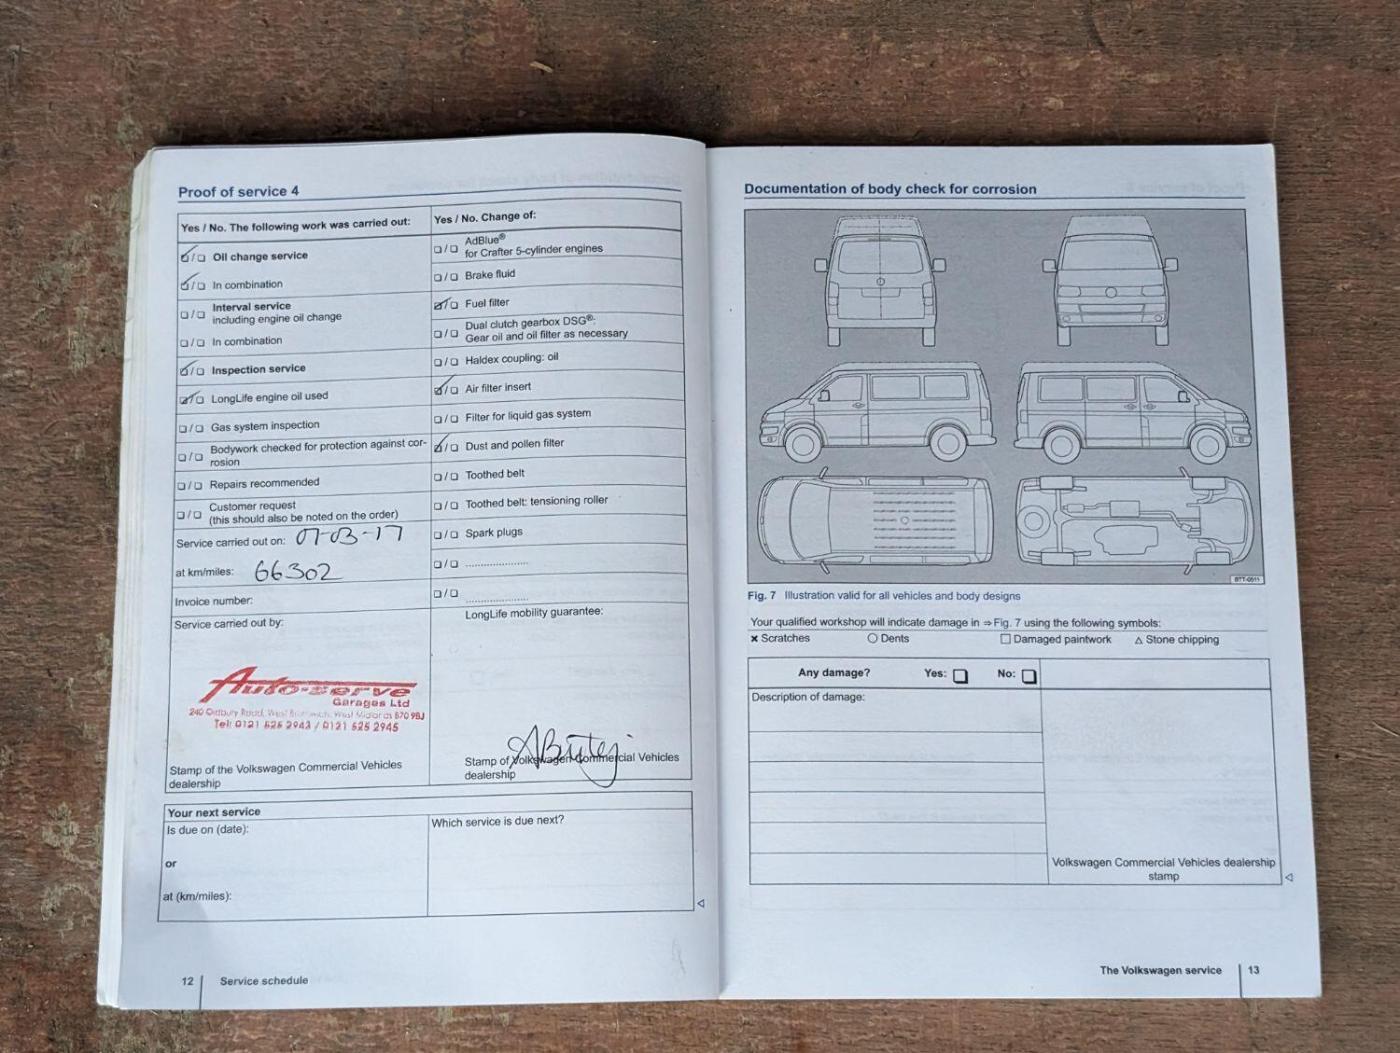 Proof of service 4
Yes / No. The following work was carried out:
Oil change service
In combination
Interval service
including engine oil change
In combination
Inspection service
LongLife engine oil used
Gas system inspection
Bodywork checked for protection against cor-
rosion
Repairs recommended
Customer request
(this should also be noted on the order)
Service carried out on: 07-03-17
at km/miles: 66302
Invoice number:
Service carried out by:
Auto-serve
Garages Ltd
240 Oldbury Road, West Bromwich, West Midlands B70 9BJ
Tel: 0121 525 2943 / 0121 525 2945
Stamp of the Volkswagen Commercial Vehicles
dealership
Yes / No. Change of:
AdBlue®
for Crafter 5-cylinder engines
Brake fluid
Fuel filter
Dual clutch gearbox DSG®:
Gear oil and oil filter as necessary
Haldex coupling: oil
Air filter insert
Filter for liquid gas system
Dust and pollen filter
Toothed belt
Toothed belt: tensioning roller
Spark plugs
LongLife mobility guarantee:
Stamp of Volkswagen Commercial Vehicles
dealership
Your next service
Is due on (date):
or
at (km/miles):
Which service is due next?
12 Service schedule
Documentation of body check for corrosion
BTT-0511
Fig. 7 Illustration valid for all vehicles and body designs
Your qualified workshop will indicate damage in ⇒ Fig. 7 using the following symbols:
× Scratches ○ Dents □ Damaged paintwork △ Stone chipping
Any damage? Yes: No:
Description of damage:
Volkswagen Commercial Vehicles dealership
stamp
The Volkswagen service 13